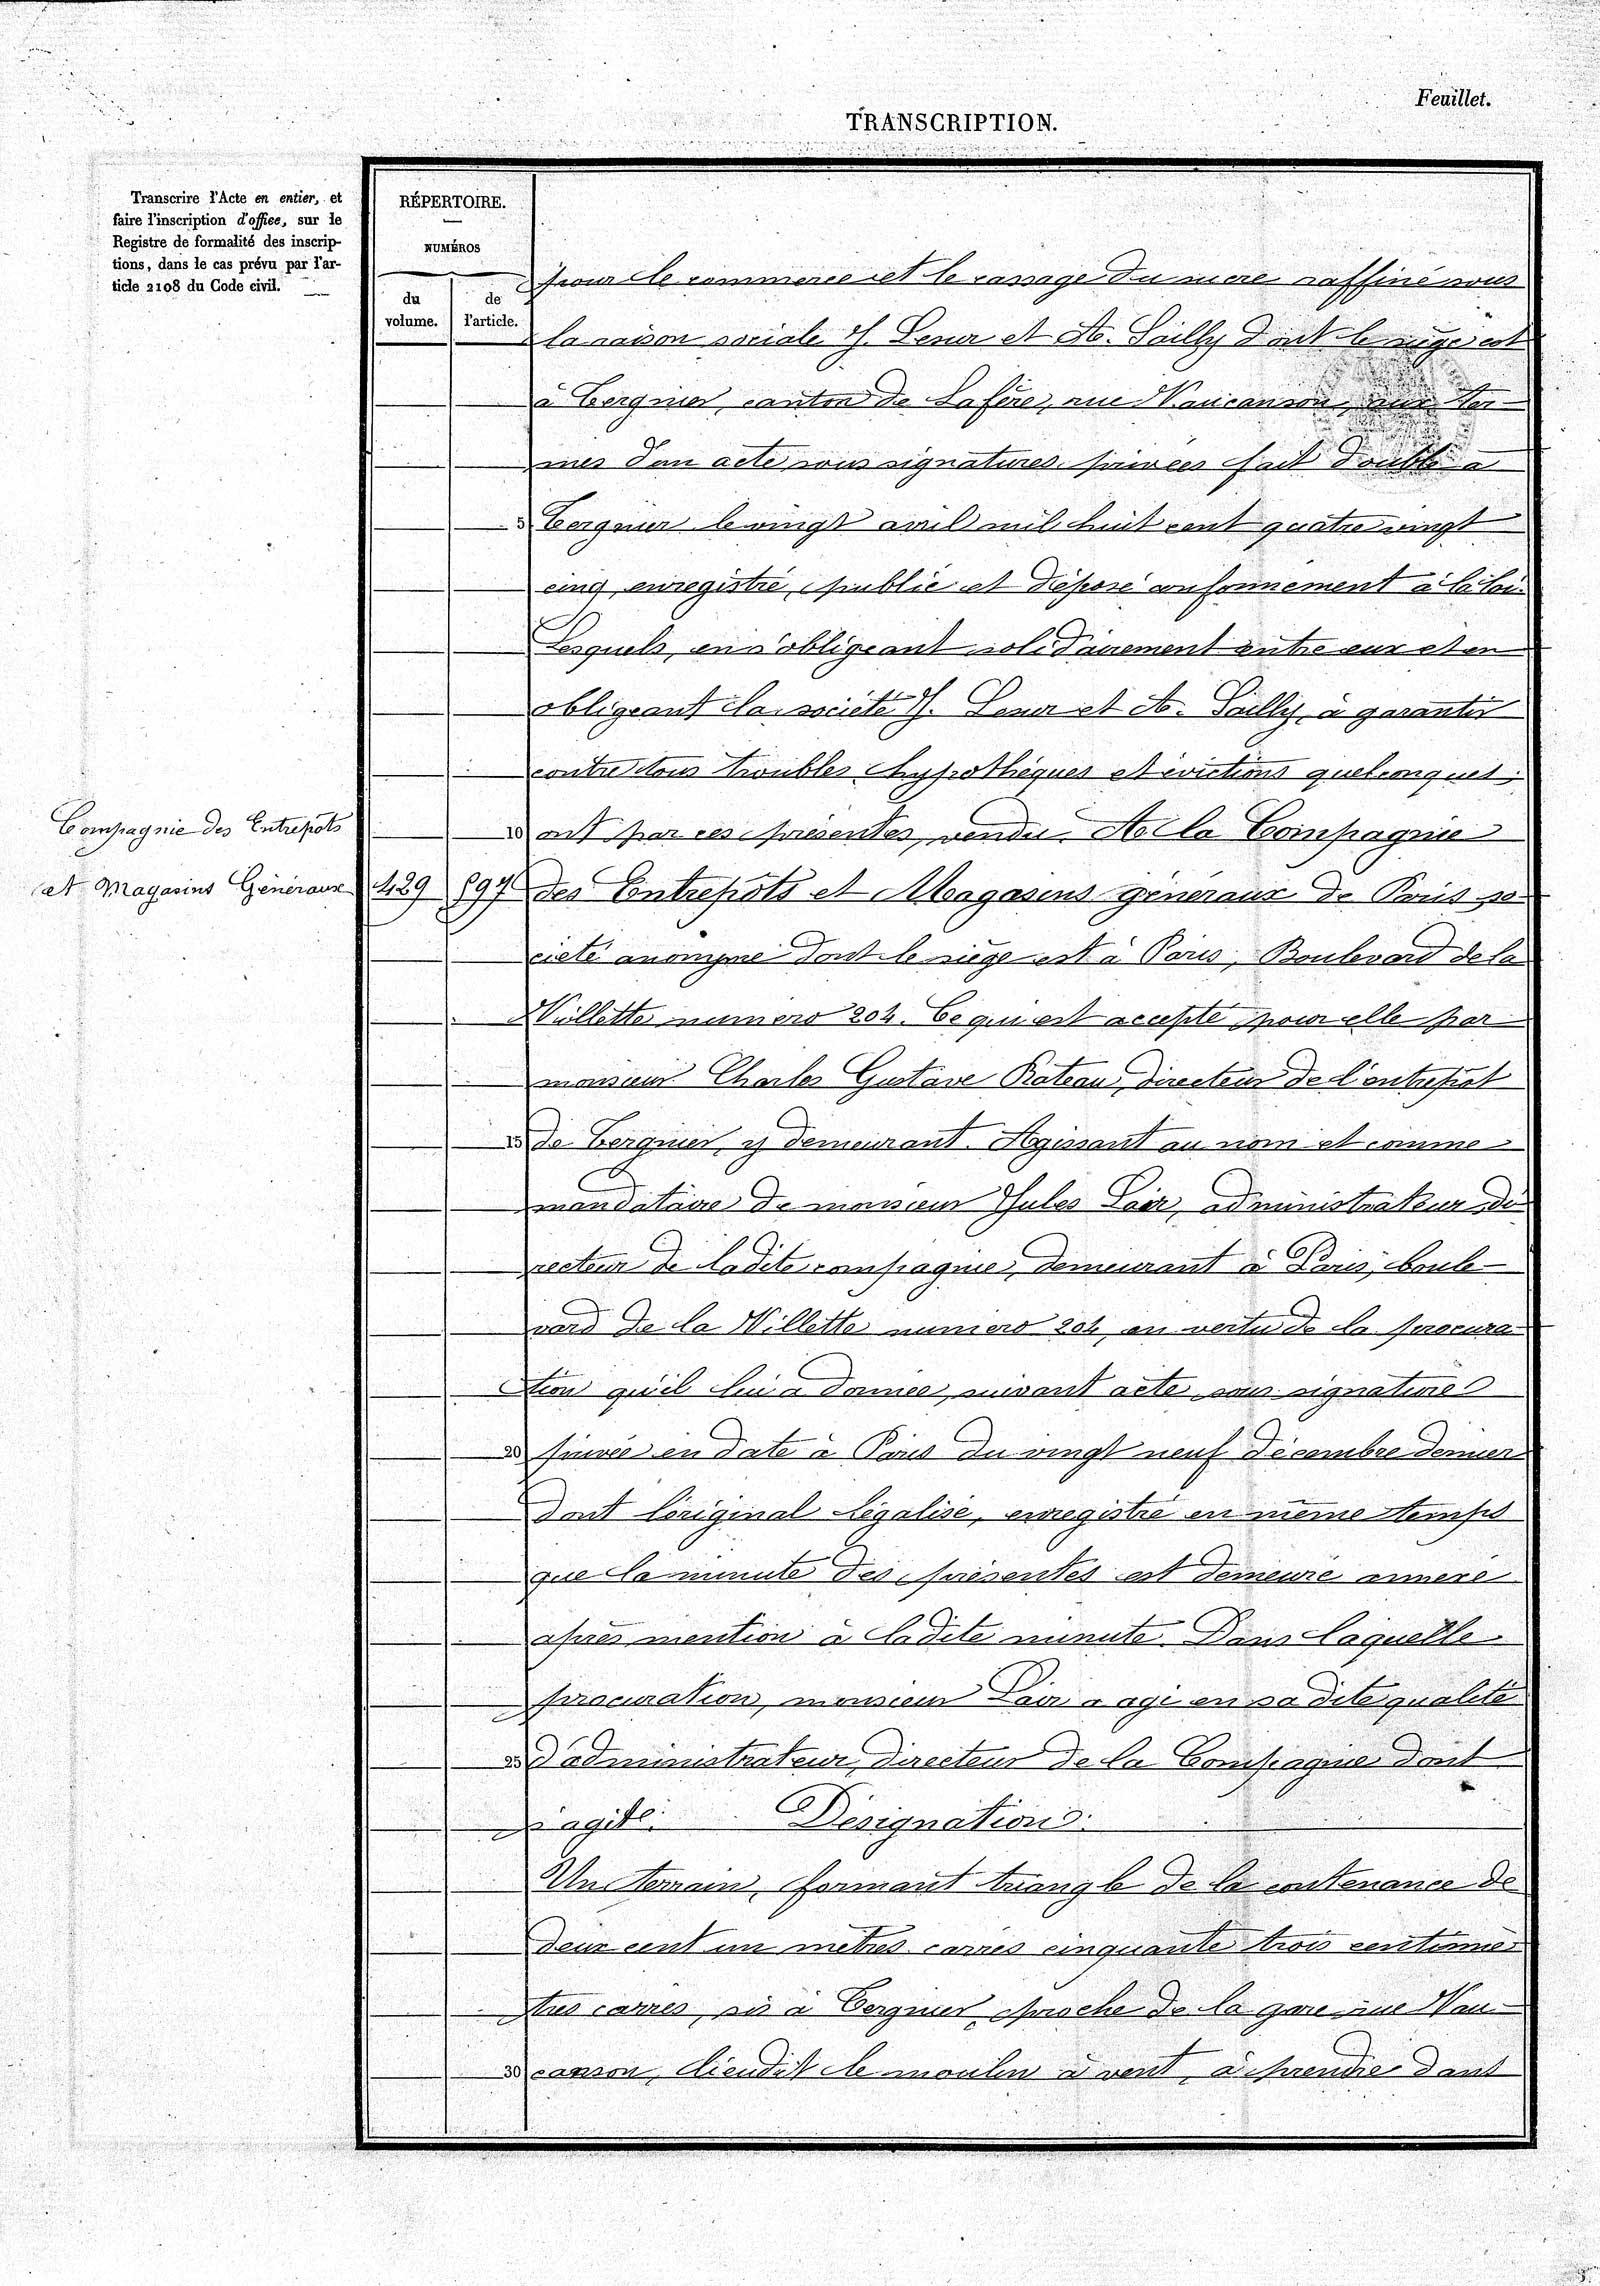 Feuillet.
TRANSCRIPTION.
Transcrire l'Acte en entier, et
faire l'inscription d'office, sur le
Registre de formalité des inscrip-
tions, dans le cas prévu par l'ar-
ticle 2108 du Code civil.
RÉPERTOIRE.
NUMÉROS
du
volume.
de
l'article.
pour le commerce et le cassage du sucre raffiné sous
la raison sociale J. Lesur et A. Sailly dont le siège est
à Tergnier, canton de Lafère, rue Vaucanson, aux ter-
mes d'un acte sous signatures privées fait double à
5 Tergnier le vingt avril mil huit cent quatre vingt
cinq, enregistré, publié et déposé conformément à la loi.
Lesquels, en s'obligeant solidairement entre eux et en
obligeant la société J. Lesur et A. Sailly, à garantir
contre tous troubles hypothèques et évictions quelconques,
10 ont par ces présentes, vendu. A la Compagnie
Compagnie des Entrepôts
et Magasins Généraux
429 897 des Entrepôts et Magasins généraux de Paris so-
ciété anonyme dont le siège est à Paris, Boulevard de la
Villette numéro 204. Ce qui est accepté pour elle par
monsieur Charles Gustave Rateau, directeur de l'entrepôt
15 de Tergnier, y demeurant. Agissant au nom et comme
mandataire de monsieur Jules Lair, administrateur di
recteur de ladite compagnie, demeurant à Paris, boule-
vard de la Villette numéro 204, en vertu de la procura-
tion qu'il lui a donnée, suivant acte sous signature
20 privée en date à Paris du vingt neuf décembre dernier
dont l'original légalisé, enregistré en même temps
que la minute des présentes est demeuré annexé
après mention à ladite minute. Dans laquelle
procuration, monsieur Lair a agi en sa dite qualité
25 d'administrateur, directeur de la Compagnie dont
s'agit. Désignation.
Un terrain, formant triangle de la contenance de
deux cent un mètres carrés cinquante trois centimè-
tres carrés, sis à Tergnier, proche de la gare, rue Vau-
30 canson, lieudit le moulin à vent, à prendre dans